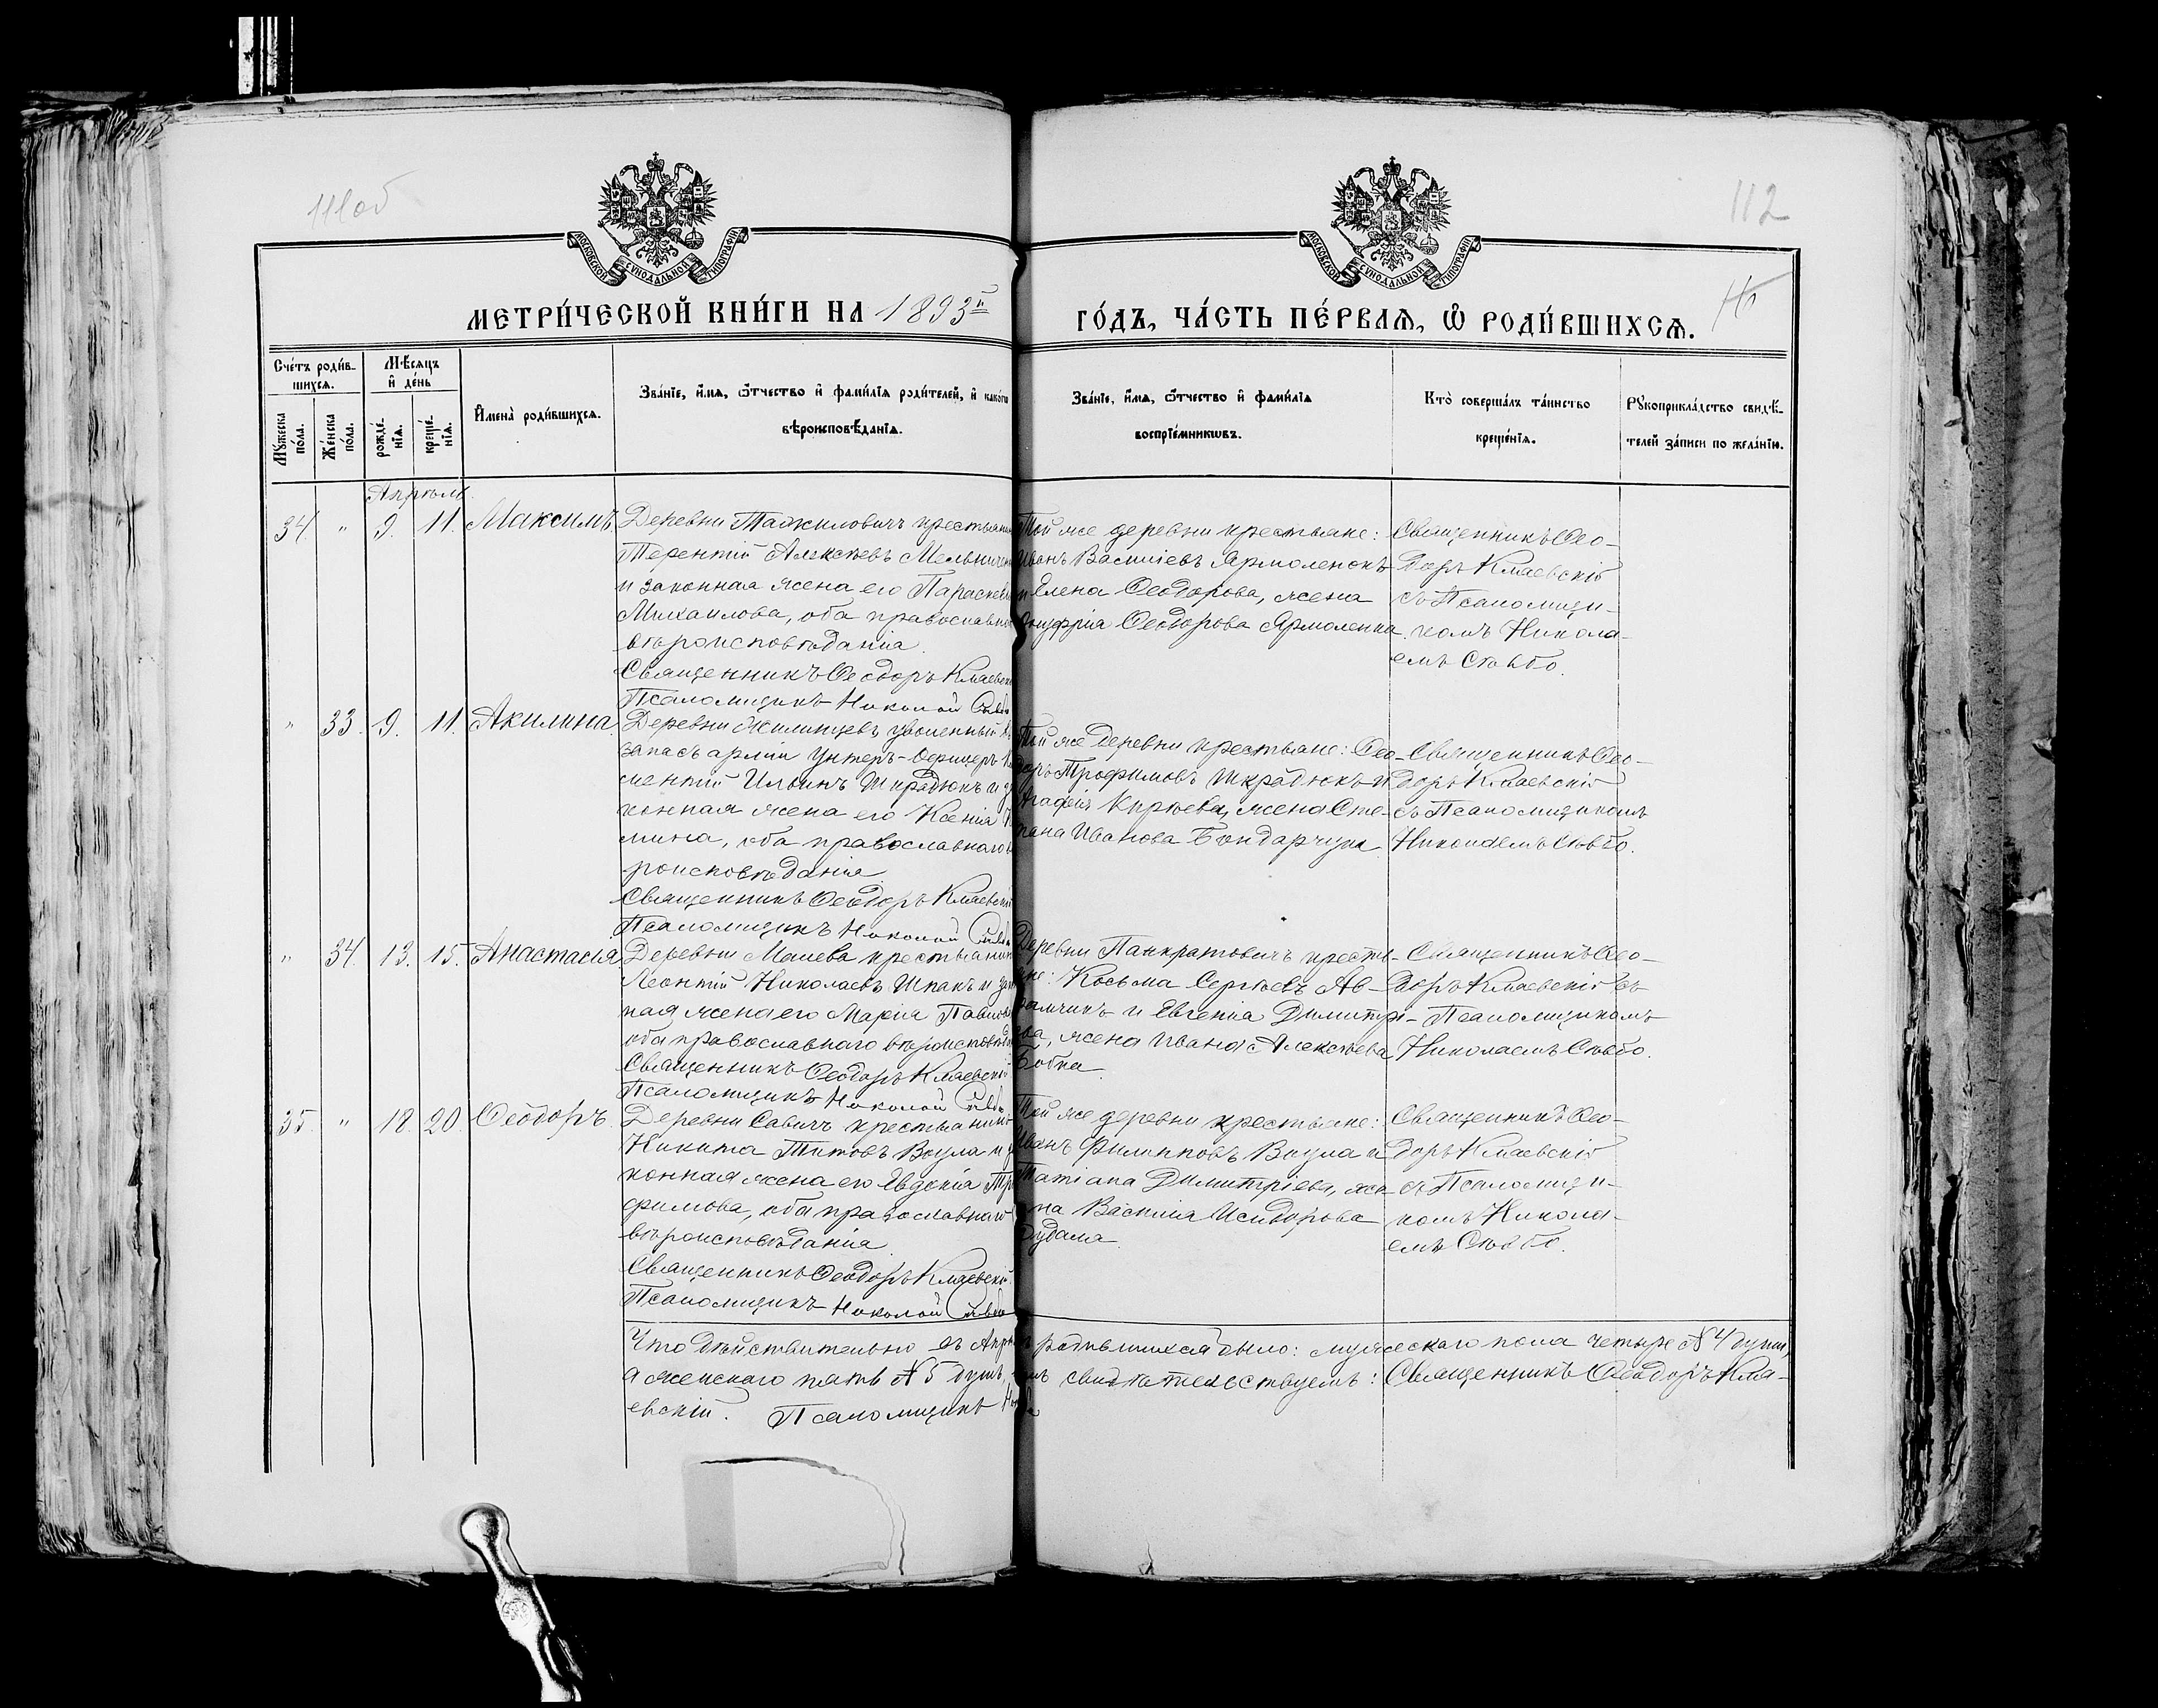 111об
112
МОСКОВСКОЙ СѴНОДАЛЬНОЙ ТИПОГРАФІИ
МОСКОВСКОЙ СѴНОДАЛЬНОЙ ТИПОГРАФІИ
МЕТРИ́ЧЕСКОЙ КНИ́ГИ НА 1893й
ГО́ДЪ, ЧА́СТЬ ПЕ́РВАѦ, Ѽ РОДИ́ВШИХСѦ.
Сче́тъ роди́в-
шихсѧ.
Мѣ́сѧцъ
и҆ де́нь
Мꙋжеска по́ла.
Же́нска по́ла.
рожде́-
нїѧ.
креще́-
нїѧ.
И҆мена̀ роди́вшихсѧ.
Зва́нїе, и҆́мѧ, ѻ҆́тчество и҆ фами́лїѧ роди́телей, и҆ како́гѡ
вѣроисповѣ́данїѧ.
Зва́нїе, и҆́мѧ, ѻ҆́тчество и҆ фами́лїѧ
воспрїе́мникѡвъ.
Кто̀ соверша́лъ та́инство
креще́нїѧ.
Рꙋкоприкла́дство свидѣ́-
телей за́писи по жела́нїю.
Апрѣль
34 " 9. 11. Максимъ.
Деревни Тажиловичъ крестьянинъ
Терентій Алексѣевъ Мельничен
и законная жена его Параскева
Михаилова, оба православнаго
вѣроисповѣданія.
Священникъ Ѳеодоръ Клаевскій
Псаломщикъ Николай
Той же деревни крестьяне:
Иванъ Василіевъ Ярмоленокъ
и Елена Ѳеодорова, жена
Онуфрія Ѳеодорова Ярмоленка.
Священникъ Ѳео-
доръ Клаевскій
съ Псаломщи-
комъ Никола-
емъ
" 33. 9. 11. Акилина.
Деревни Жилинцевъ уволенный въ
запасъ арміи Унтеръ-Офицеръ
ментій Ильинъ Шкрадюкъ и за
конная жена его Ксенія
мина, оба православнаго вѣ
роисповѣданія.
Священникъ Ѳеодоръ Клаевскій
Псаломщикъ Николай
Той же деревни крестьяне: Ѳео-
доръ Трофимовъ Шкрадюкъ и
Агафія жена Сте-
пана Иванова Бондарчука.
Священникъ Ѳео-
доръ Клаевскій
съ Псаломщикомъ
Николаемъ
" 34. 13. 15. Анастасія.
Деревни Малева крестьянинъ
Леонтій Николаевъ Шпакъ и закон
ная жена его Марія Павлова
оба православнаго вѣроисповѣд
Священникъ Ѳеодоръ Клаевскій
Псаломщикъ Николай
Деревни Панкратовичъ кресть-
яне: Косьма Сергѣевъ Ав-
рамчикъ и Евгенія Димитрі-
ева, жена Ивана Алексѣева
Бобка.
Священникъ Ѳео-
доръ Клаевскій съ
Псаломщикомъ
Николаемъ
35. " 18. 20. Ѳеодоръ.
Деревни Савичъ крестьянинъ
Никита Титовъ Вкула и за
конная жена его Евдокія Тро
фимова, оба православнаго
вѣроисповѣданія.
Священникъ Ѳеодоръ Клаевскій
Псаломщикъ Николай
Той же деревни крестьяне:
Иванъ Филипповъ Вкула и
Татіана Димитріева, же-
на Василія Исидорова
Дудала.
Священникъ Ѳео-
доръ Клаевскій
съ Псаломщи-
комъ Никола-
емъ
Что дѣйствительно въ Апрѣлѣ родившихся было: мужескаго пола четыре № 4 души,
а женскаго пять № 5 душъ, въ томъ свидѣтельствуемъ: Священникъ Ѳеодоръ Кла-
евскій. Псаломщикъ